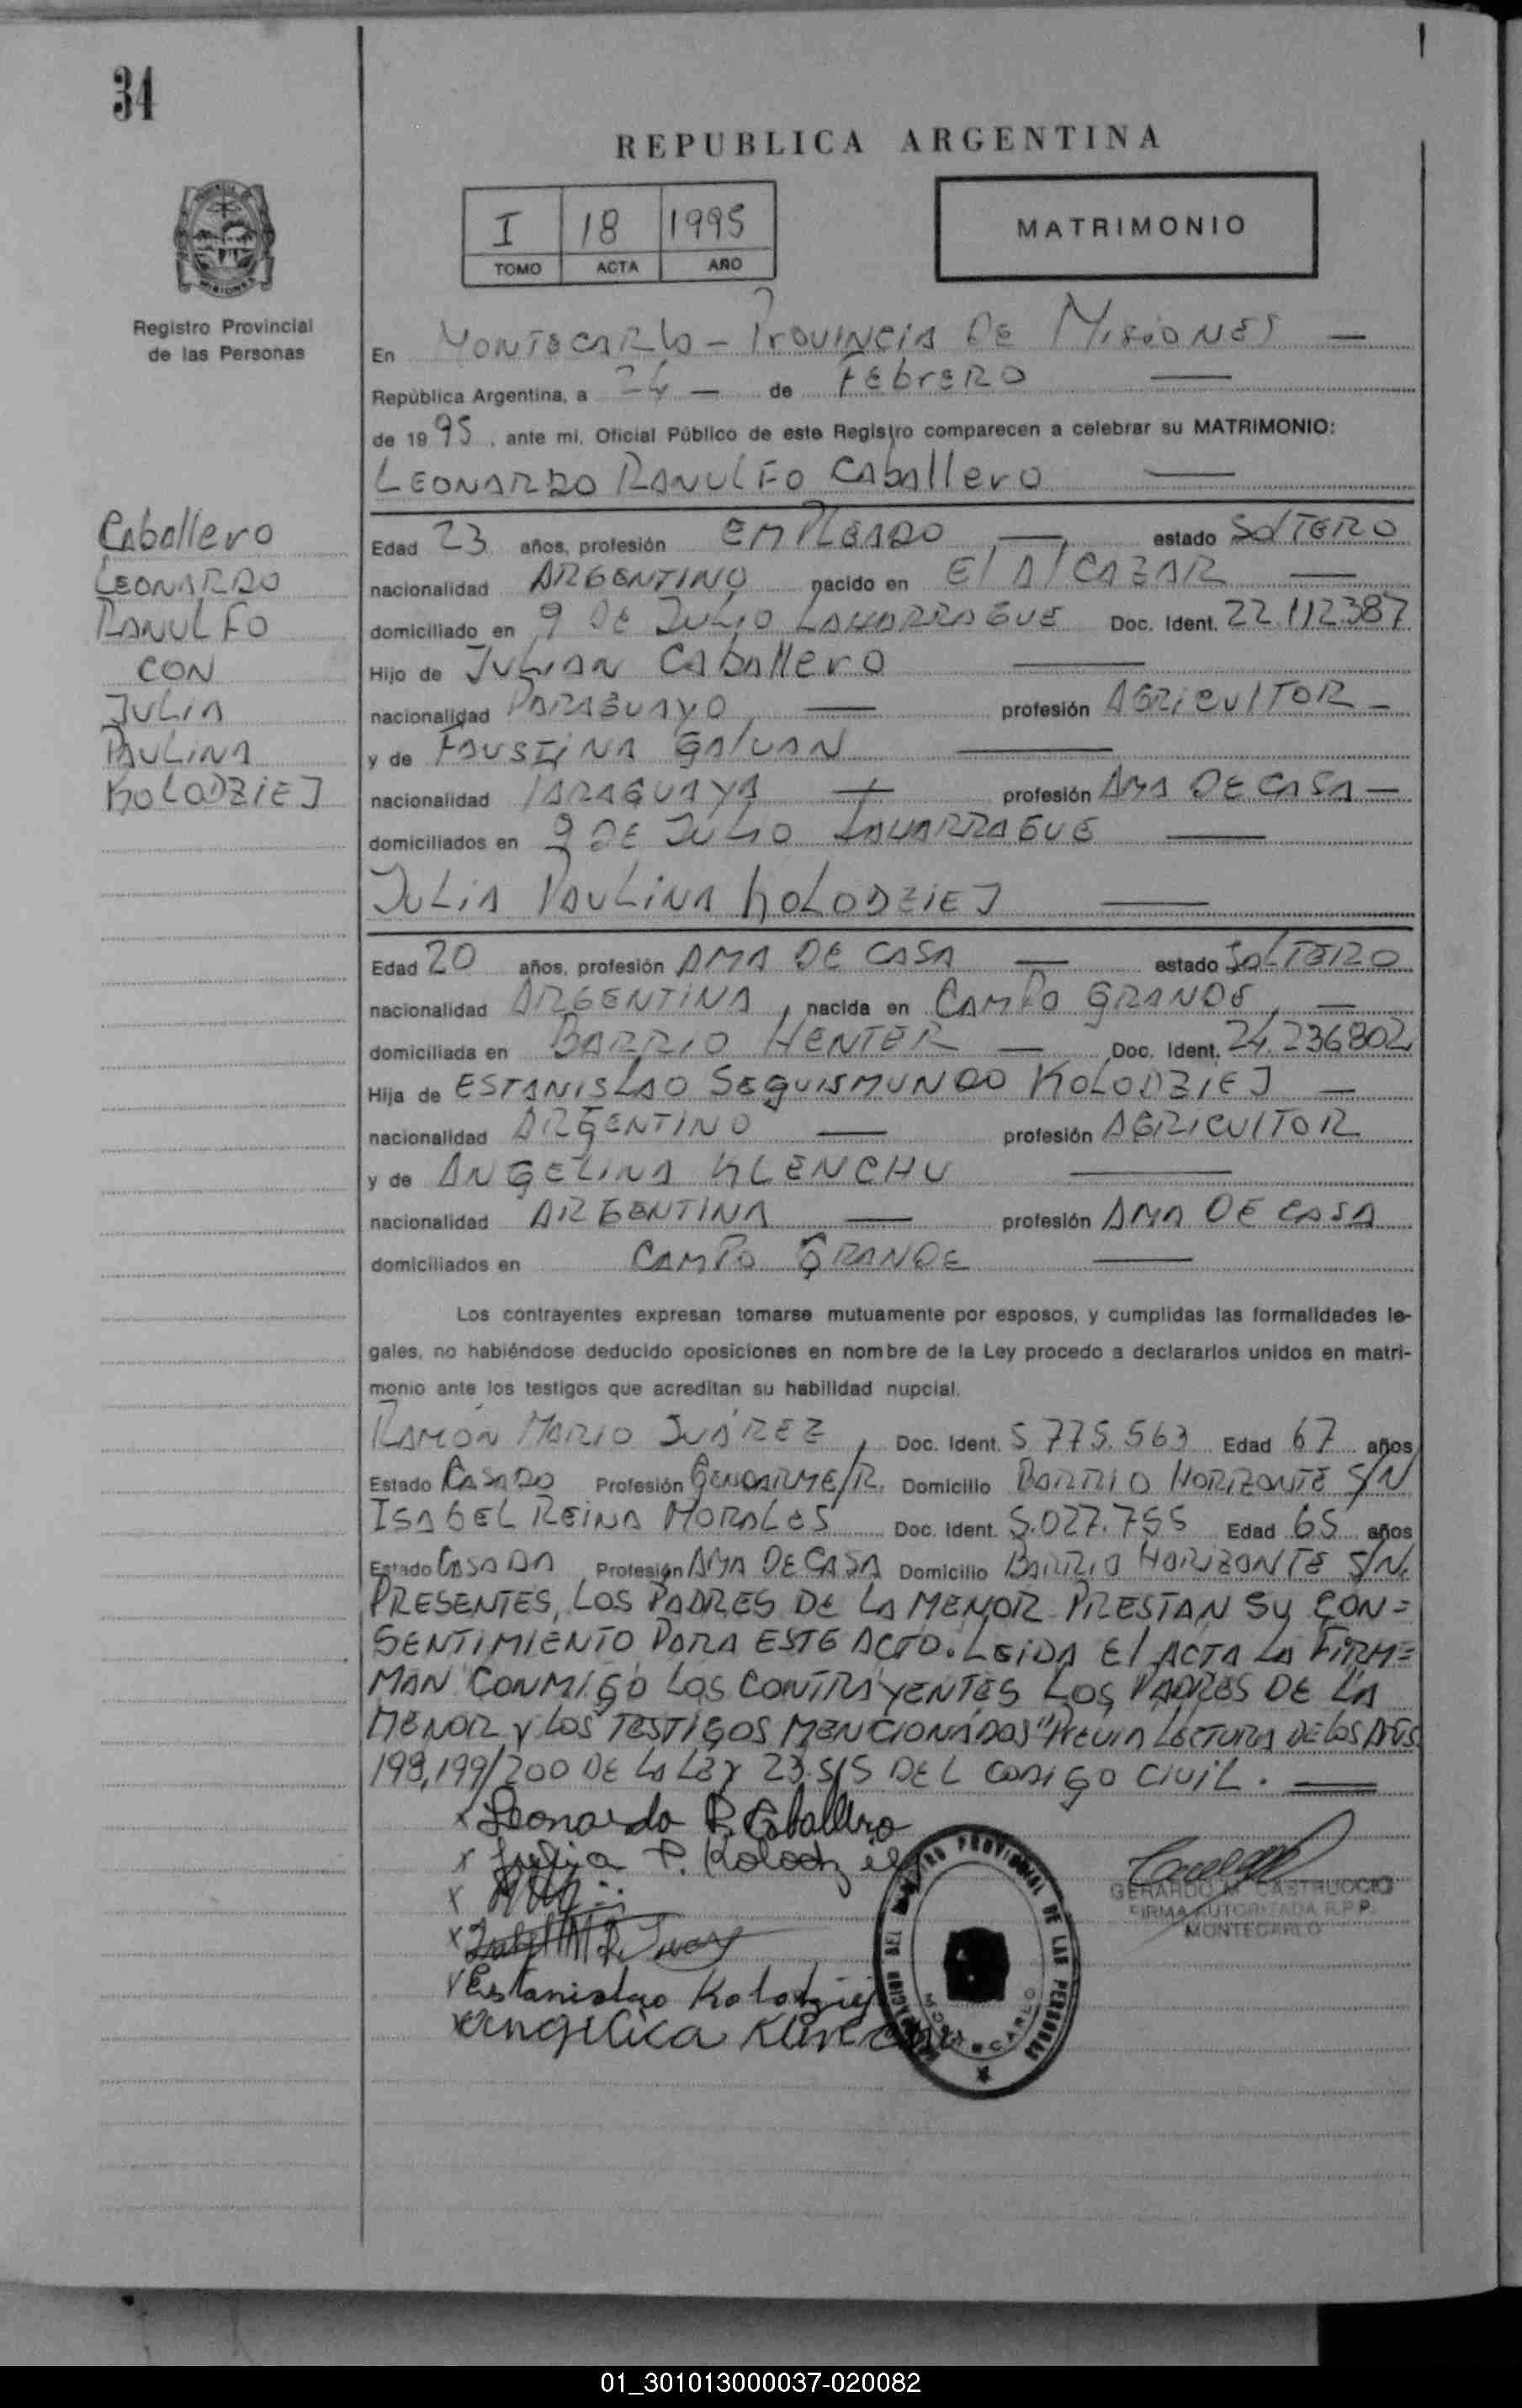 34
REPUBLICA ARGENTINA
I 18 1995
TOMO ACTA AÑO
MATRIMONIO
Registro Provincial
de las Personas
Caballero
LEONARDO
RANULFO
CON
JULIA
PAULINA
KOLODZIEJ
En MONTECARLO - PROVINCIA DE MISIONES —
República Argentina, a 24 — de FEBRERO —
de 1995, ante mi, Oficial Público de este Registro comparecen a celebrar su MATRIMONIO:
LEONARDO RANULFO CABALLERO —
Edad 23 años, profesión EMPLEADO —, estado SOLTERO
nacionalidad ARGENTINO, nacido en El AlCAZAR —
domiciliado en 9 DE JULIO LAHARRAGUE Doc. Ident. 22.112.387
Hijo de JULIAN CABAllERO —
nacionalidad PARAGUAYO — profesión AGRICULTOR —
y de FAUSTINA GALVAN —
nacionalidad PARAGUAYA — profesión AMA DE CASA —
domiciliados en 9 DE JULIO LAHARRAGUE —
JULIA PAULINA KOLODZIEJ —
Edad 20 años, profesión AMA DE CASA — estado SOLTERO
nacionalidad ARGENTINA, nacida en CAMPO GRANDE, —
domiciliada en BARRIO HENTER — Doc. Ident. 24.236802
Hija de ESTANISLAO SEGUISMUNDO KOLODZIEJ —
nacionalidad ARGENTINO — profesión AGRICULTOR
y de ANGELINA KLENCHU —
nacionalidad ARGENTINA — profesión AMA DE CASA
domiciliados en CAMPO GRANDE —
Los contrayentes expresan tomarse mutuamente por esposos, y cumplidas las formalidades le-
gales, no habiéndose deducido oposiciones en nombre de la Ley procedo a declararlos unidos en matri-
monio ante los testigos que acreditan su habilidad nupcial.
RAMÓN MARIO JUÁREZ, Doc. Ident. 5.775.563 Edad 67 años
Estado CASADO Profesión GENDARME/R. Domicilio BARRIO HORIZONTE S/N
ISABEL REINA MORALES Doc. Ident. 5.027.755 Edad 65 años
Estado CASADA Profesión AMA DE CASA Domicilio BARRIO HORIZONTE S/N.
PRESENTES, LOS PADRES DE LA MENOR PRESTAN SU CON=
SENTIMIENTO PARA ESTE ACTO. LEIDA El ACTA LA FIRM=
MAN CONMIGO LOS CONTRAYENTES LOS PADRES DE LA
MENOR Y LOS TESTIGOS MENCIONADOS "PREVIA LECTURA DE LOS ARTS.
198,199/200 DE LA LEY 23.515 DEL CODIGO CIVIL. —
x Leonardo R. Caballero
x Julia P. Kolodziej
x
x
x Estanislao Kolodziej
x Angelica
GERARDO M. CASTRUCCIO
FIRMA AUTORIZADA R.P.P.
MONTECARLO
PROVINCIAL DE LAS PERSONAS
MONTECARLO
01_301013000037-020082